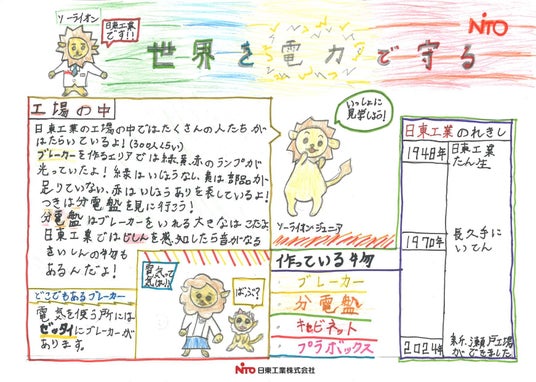 ソーライオン
日東工業
です!!
世界を電力で守る
NITO
工場の中
日東工業の工場の中ではたくさんの人たちが
はたらいているよ!(300人くらい)
ブレーカーを作るエリアでは緑、黄、赤のランプが
光っていたよ!緑はいじょうなし、黄は部品が
足りていない、赤はいじょうありを表しているよ!
つぎは分電盤を見に行こう!
分電盤はブレーカーをいれる大きなはこだよ。
日東工業ではじしんを感知したら音がなる
きいしんの物も
あるんだよ!
いっしょに
見学しよう!
ソーライオンジュニア
どこでもあるブレーカー
電気を使う所には
ゼッタイにブレーカーが
あります。
電気って
気はい!
ばぶ?
作っている物
・ブレーカー
・分電盤
・キャビネット
・プラボックス
日東工業のれきし
1948年
日東工業
たん生
1970年
長久手に
いてん
2024年
新、瀬戸工場
ができました。
NITO 日東工業株式会社